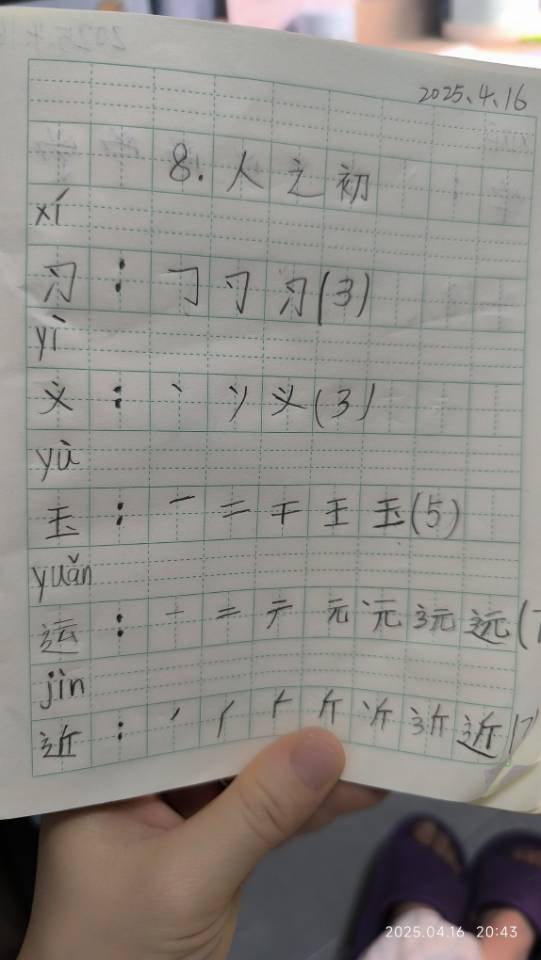 2025.4.16
8. 人之初
xí
习：㇆ 刁 习(3)
yì
义：丶 丷 义(3)
yù
玉：一 二 干 王 玉(5)
yuǎn
运：一 二 テ 元 沅 远(7
jìn
近：丿 厂 斤 近(7
2025.04.16 20:43